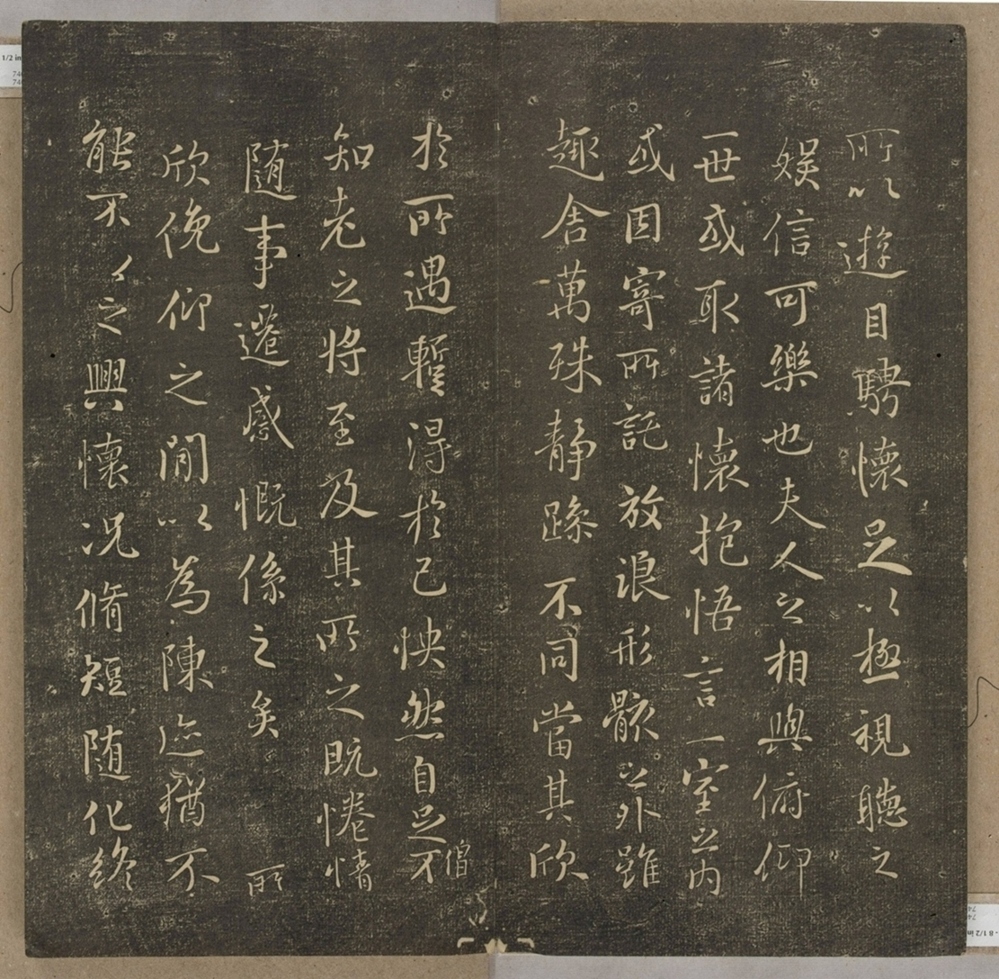 所以遊目騁懷足以極視聽之
娛信可樂也夫人之相與俯仰
一世或取諸懷抱悟言一室之內
或因寄所託放浪形骸之外雖
趣舍萬殊静躁不同當其欣
於所遇暫得於己怏然自足不
僧
知老之將至及其所之既惓情
隨事遷感慨係之矣 所
欣俛仰之間以為陳迹猶不
能不以之興懷況脩短隨化終
1/2 in
8 1/2 in